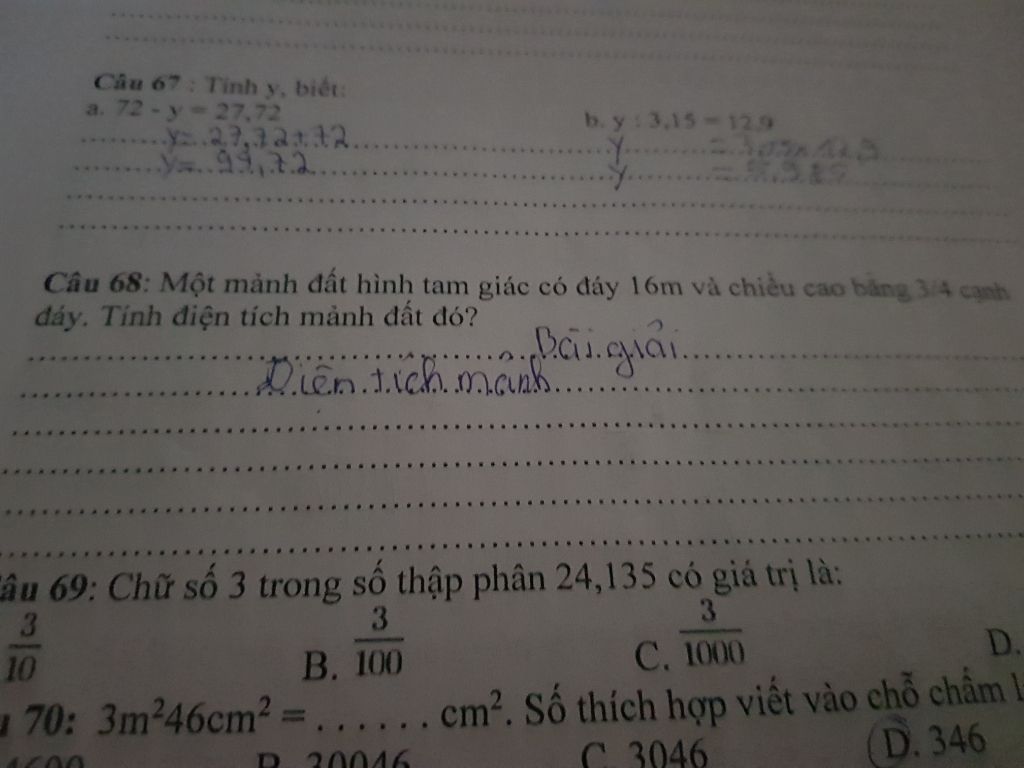 Câu 67 : Tính y, biết:
a. 72 - y = 27,72
b. y : 3,15 = 12,9
y = 27,72 + 72
y
y = 99,72
y
Câu 68: Một mảnh đất hình tam giác có đáy 16m và chiều cao bằng 3/4 cạnh
đáy. Tính diện tích mảnh đất đó?
Bài giải
Diện tích mảnh
âu 69: Chữ số 3 trong số thập phân 24,135 có giá trị là:
3/10 B. 3/100 C. 3/1000 D.
70: 3m²46cm² = . . . . . . cm². Số thích hợp viết vào chỗ chấm l
B. 30046 C. 3046 D. 346